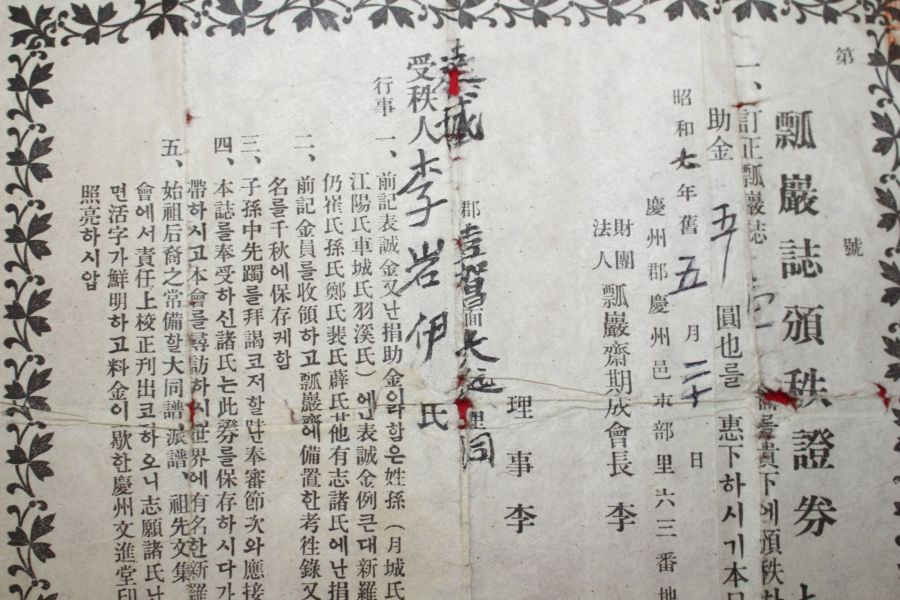 第 號
瓢巖誌頒秩證券
一、訂正瓢巖誌 壹 秩를貴下에頒秩
助金 五 圓也를 惠下하시기本
昭和七年舊五月二十日
慶州郡慶州邑東部里六三番地
財團法人 瓢巖齋期成會長 李
理事 李
達城郡 求智昌面 大 理 同
受秩人 李岩伊 氏
行事 一、前記表誠金又난捐助金이라함은姓孫(月城氏
江陽氏車城氏羽溪氏)에난表誠金例큰대新羅
仍崔氏孫氏鄭氏裴氏薛氏其他有志諸氏에난捐
二、前記金員를收領하고瓢巖齋에備置한考徃錄又
名를千秋에保存케함
三、子孫中先躅를拜謁코저할난奉審節次와應接
四、本誌를奉受하신諸氏는此券를保存하시다가
帶하시고本會를尋訪하시世界에有名한新羅
五、始祖后裔之常備할大同譜、派譜、祖先文集
會에서責任上校正刊出코저하오니志願諸氏난
면活字가鮮明하고料金이歇한慶州文進堂印
照亮하시압